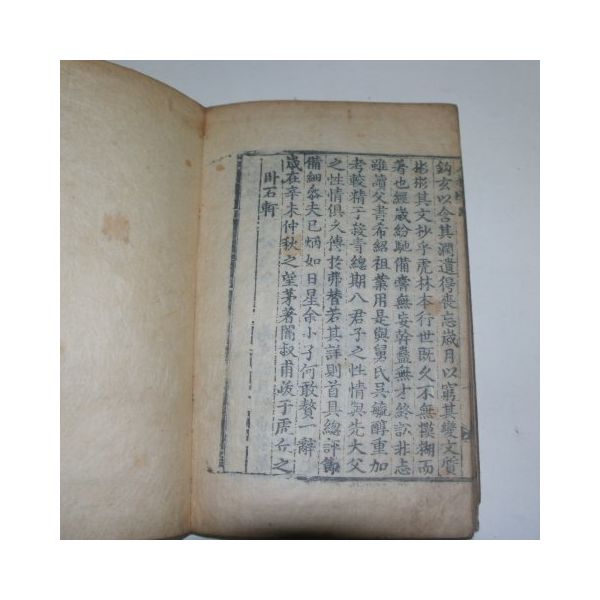 鈎玄以含其澗遺得喪忘歲月以窮其變文質
彬彬其文抄乎虎林本行世既久不無模糊而
著也經歲紛馳備嘗無妄幹蠱無才終訟朴忘
雖讀父書希紹祖業用是與舅氏吳毓醇重加
考較精于殺青總期八君子之性情與先大父
之性情俱久傳於弗替若其詳則首具總評
備細叅夫已炳如日星余小子何敢贅一辭
歲在辛未仲秋之望茅著闇叔甫歧于虎丘之
卧石軒